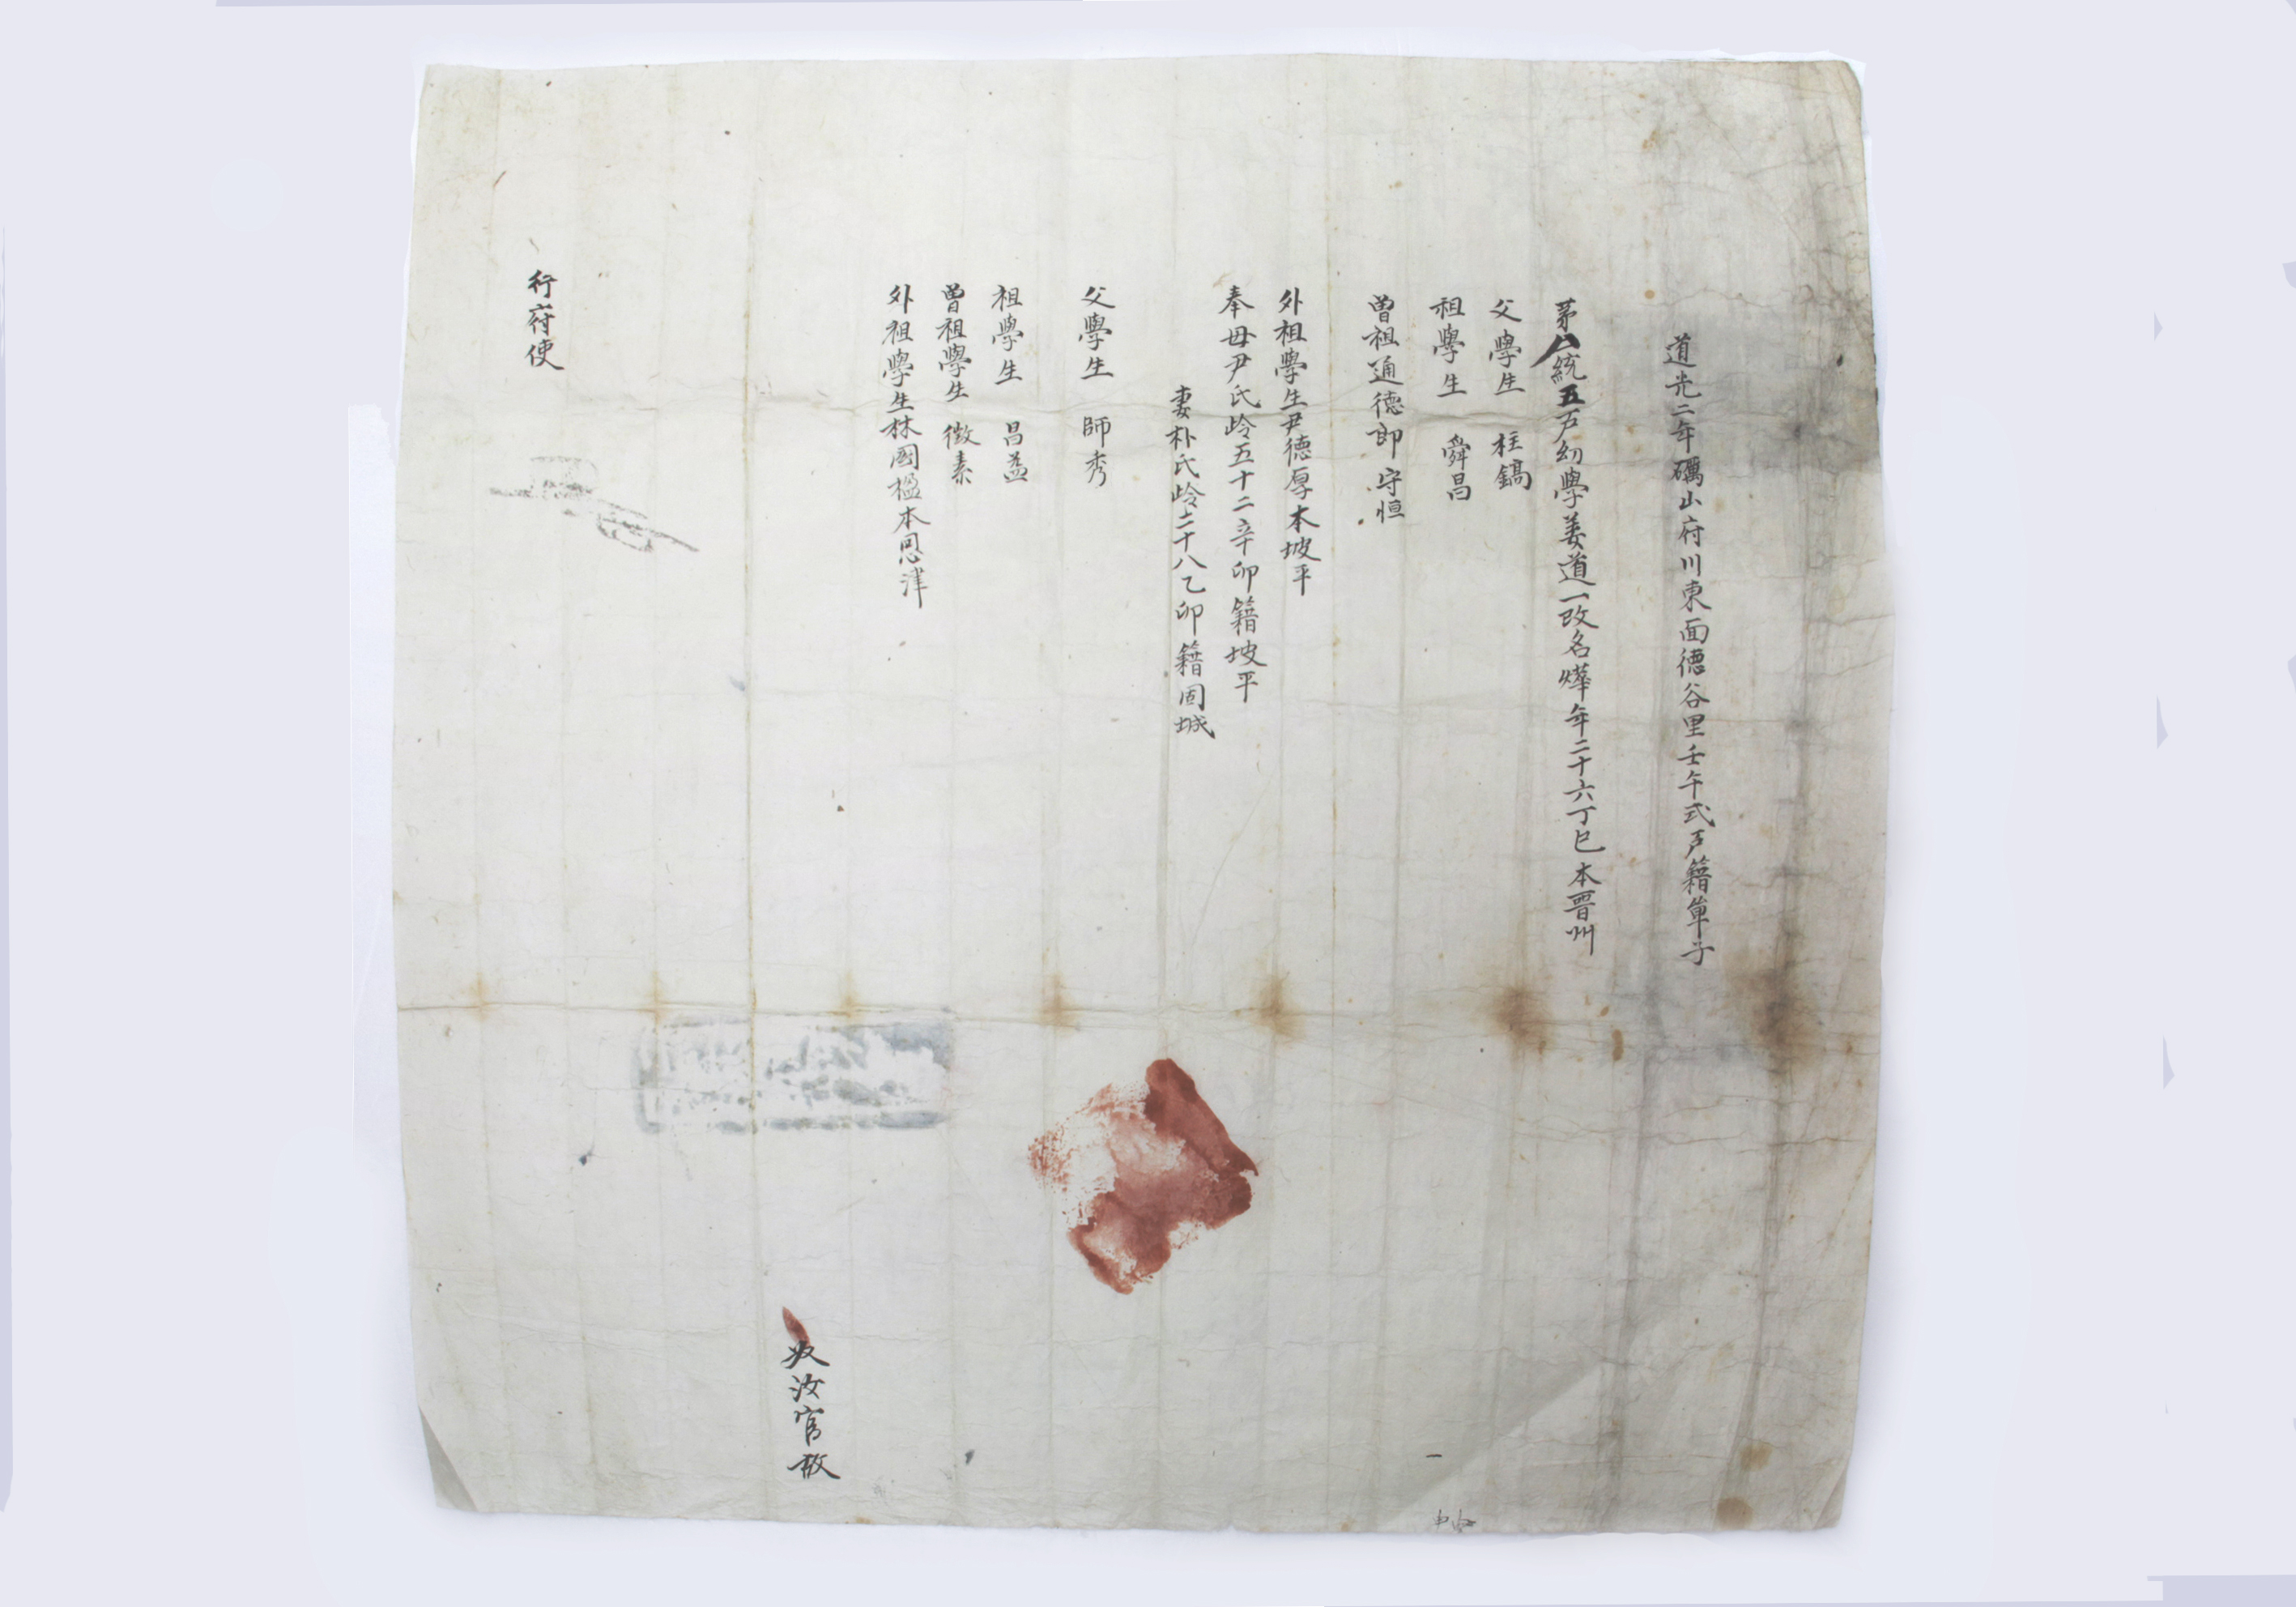 道光二年礪山府川東面德谷里壬午式戶籍單子
茅八統五戶幼學姜道一改名燁年二十六丁巳本晋州
父學生 柱鎬
祖學生 舜昌
曽祖通德郎 守恒
外祖學生尹德厚本坡平
奉母尹氏岭五十二辛卯籍坡平
妻朴氏岭二十八乙卯籍固城
父學生 師秀
祖學生 昌益
曽祖學生 徵素
外祖學生林國楹本恩津
行府使
汝官